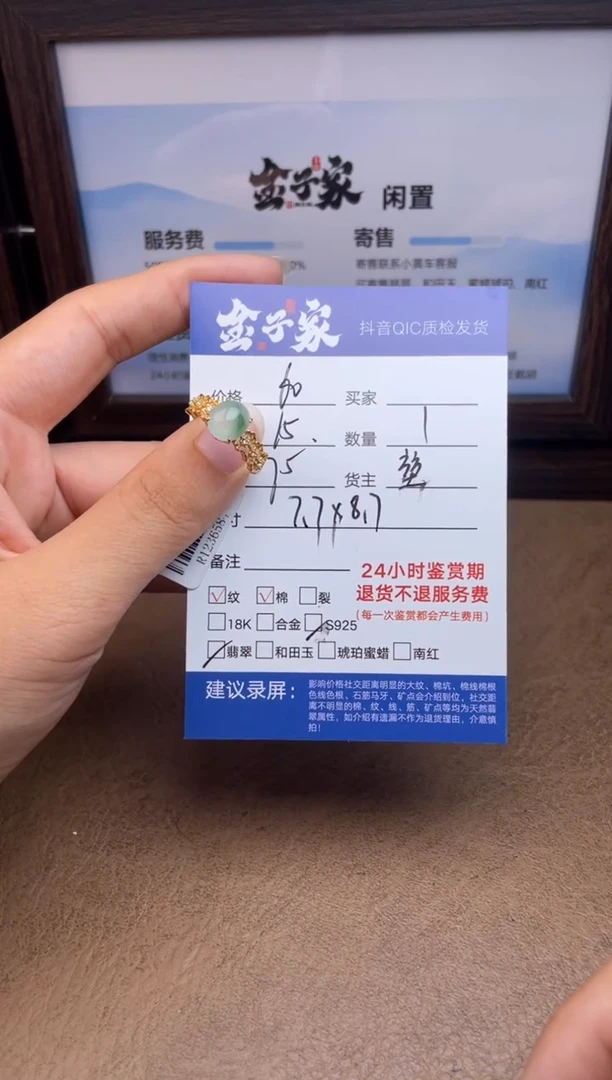 金子家 闲置
服务费 寄售
寄售联系小黄车客服
金子家 抖音QIC质检发货
价格 90 买家
15. 数量 1
75 货主
寸 7.7x8.7
备注
24小时鉴赏期
退货不退服务费
(每一次鉴赏都会产生费用)
纹 棉 裂
18K 合金 S925
翡翠 和田玉 琥珀蜜蜡 南红
建议录屏:
影响价格社交距离明显的大纹、棉坑、棉线棉根
色线色根,石筋马牙、矿点会介绍到位,社交距
离不明显的棉、纹、线、筋、矿点等均为天然翡
翠属性,如介绍有遗漏不作为退货理由,介意慎
拍!